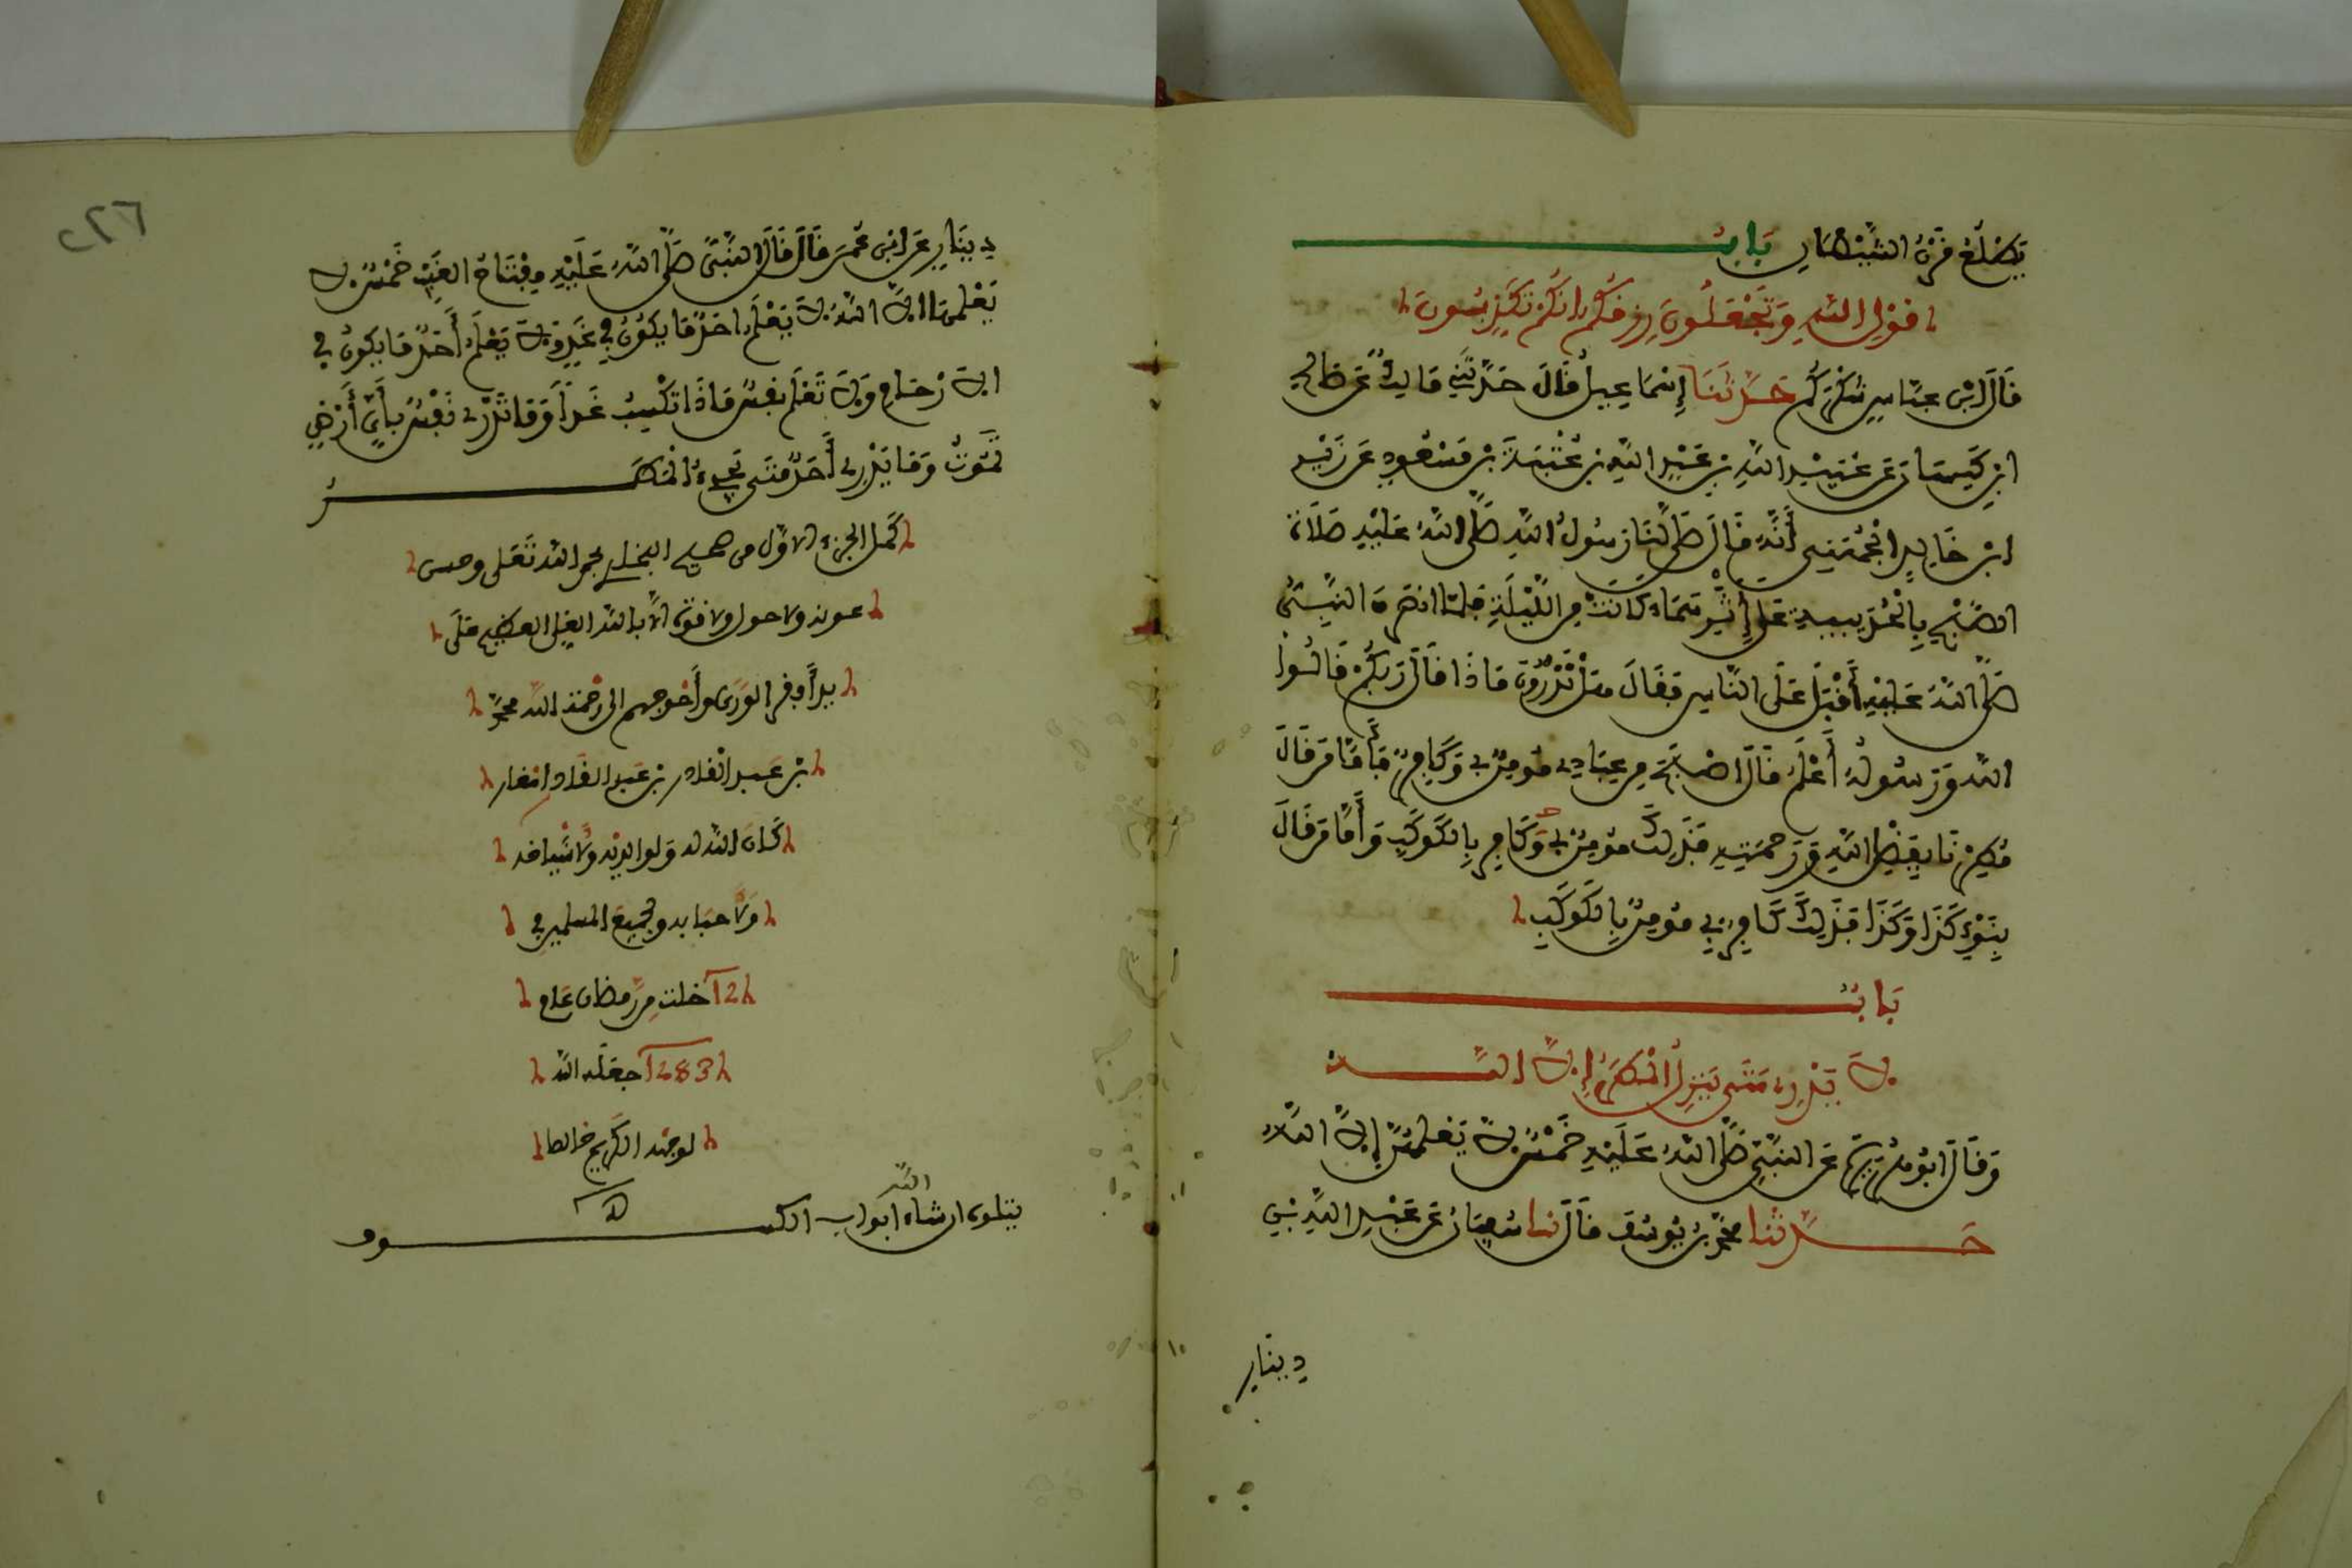 يَطْلُعُ قَرْنُ الشَّيْطَانِ بَابُ
قَوْلِ اللهِ وَتَجْعَلُونَ رِزْقَكُمْ أَنَّكُمْ تُكَذِّبُونَ
قَالَ ابْنُ عَبَّاسٍ شُكْرَكُمْ حَدَّثَنَا إِسْمَاعِيلُ قَالَ حَدَّثَنِي مَالِكٌ عَنْ صَالِحِ
ابْنِ كَيْسَانَ عَنْ عُبَيْدِ اللهِ بْنِ عَبْدِ اللهِ بْنِ عُتْبَةَ بْنِ مَسْعُودٍ عَنْ زَيْدِ
ابْنِ خَالِدٍ الْجُهَنِيِّ أَنَّهُ قَالَ صَلَّى لَنَا رَسُولُ اللهِ صَلَّى اللهُ عَلَيْهِ صَلَاةَ
الصُّبْحِ بِالْحُدَيْبِيَةِ عَلَى إِثْرِ سَمَاءٍ كَانَتْ مِنَ اللَّيْلَةِ فَلَمَّا انْصَرَفَ النَّبِيُّ
صَلَّى اللهُ عَلَيْهِ أَقْبَلَ عَلَى النَّاسِ فَقَالَ هَلْ تَدْرُونَ مَاذَا قَالَ رَبُّكُمْ قَالُوا
اللهُ وَرَسُولُهُ أَعْلَمُ قَالَ أَصْبَحَ مِنْ عِبَادِي مُؤْمِنٌ بِي وَكَافِرٌ فَأَمَّا مَنْ قَالَ
مُطِرْنَا بِفَضْلِ اللهِ وَرَحْمَتِهِ فَذَلِكَ مُؤْمِنٌ بِي وَكَافِرٌ بِالْكَوْكَبِ وَأَمَّا مَنْ قَالَ
بِنَوْءِ كَذَا وَكَذَا فَذَلِكَ كَافِرٌ بِي مُؤْمِنٌ بِالْكَوْكَبِ
بَابُ
لَا يَدْرِي مَتَى يَنْزِلُ الْمَطَرُ إِلَّا اللهُ
وَقَالَ أَبُو هُرَيْرَةَ عَنِ النَّبِيِّ صَلَّى اللهُ عَلَيْهِ خَمْسٌ لَا يَعْلَمُهُنَّ إِلَّا اللهُ
حَدَّثَنَا مُحَمَّدُ بْنُ يُوسُفَ قَالَ نا سُفْيَانُ عَنْ عَبْدِ اللهِ بْنِ
دينار
٢٢٦
دِينَارٍ عَنِ ابْنِ عُمَرَ قَالَ قَالَ النَّبِيُّ صَلَّى اللهُ عَلَيْهِ مِفْتَاحُ الْغَيْبِ خَمْسٌ لَا
يَعْلَمُهَا إِلَّا اللهُ لَا يَعْلَمُ أَحَدٌ مَا يَكُونُ فِي غَدٍ وَلَا يَعْلَمُ أَحَدٌ مَا يَكُونُ فِي
الْأَرْحَامِ وَلَا تَعْلَمُ نَفْسٌ مَاذَا تَكْسِبُ غَداً وَمَا تَدْرِي نَفْسٌ بِأَيِّ أَرْضٍ
تَمُوتُ وَمَا يَدْرِي أَحَدٌ مَتَى يَجِيءُ الْمَطَرُ
كَمُلَ الجزء الأوّل من صحيح البخاري بحمد الله تَعَلى وحسن
عونه ولا حول ولا قوة إلا بالله العلي العظيم عَلَى
يد أفقر الوَرَى وأحوجهم الى رحمة الله محمّد
بن عبد القادر بن عبد القادر
كَانَ الله له ولوالديه ولأشياخه
ولأحبابه ولجميع المسلمين في
12 خلت من رمضان عام
1283 جعله الله
لوجهه الكريم خالصا
يتلوه ان شاء الله ابواب الكسوف